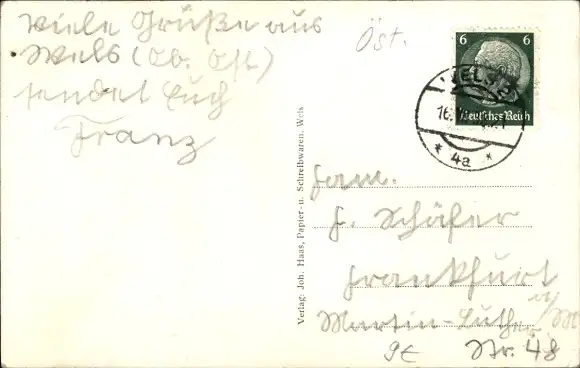 Viele Grüße aus
Wels (Ob. Öst.)
sendet Euch
Franz
Öst.
6 6
Deutsches Reich
WELS
16.
* 4a *
Verlag: Joh. Haas, Papier- u. Schreibwaren, Wels
Fam.
F. Schäfer
Frankfurt
a/M
Martin-Luther
Nr. 48